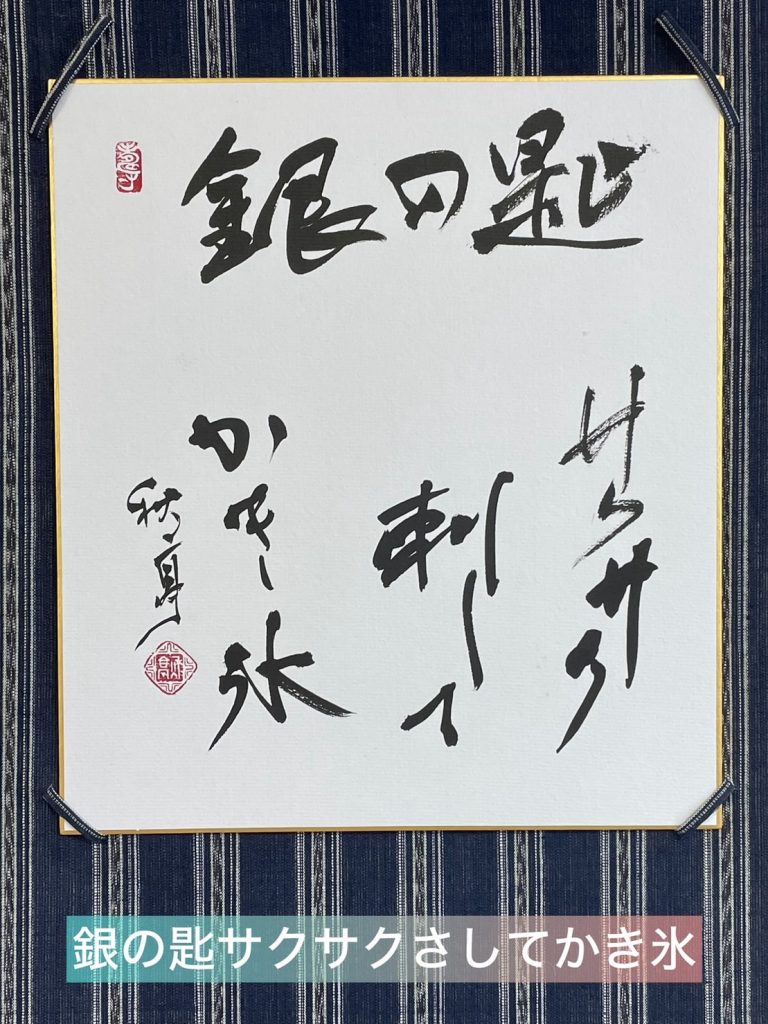 銀の匙
サクサク
刺して
かき氷
秋亭
銀の匙サクサクさしてかき氷